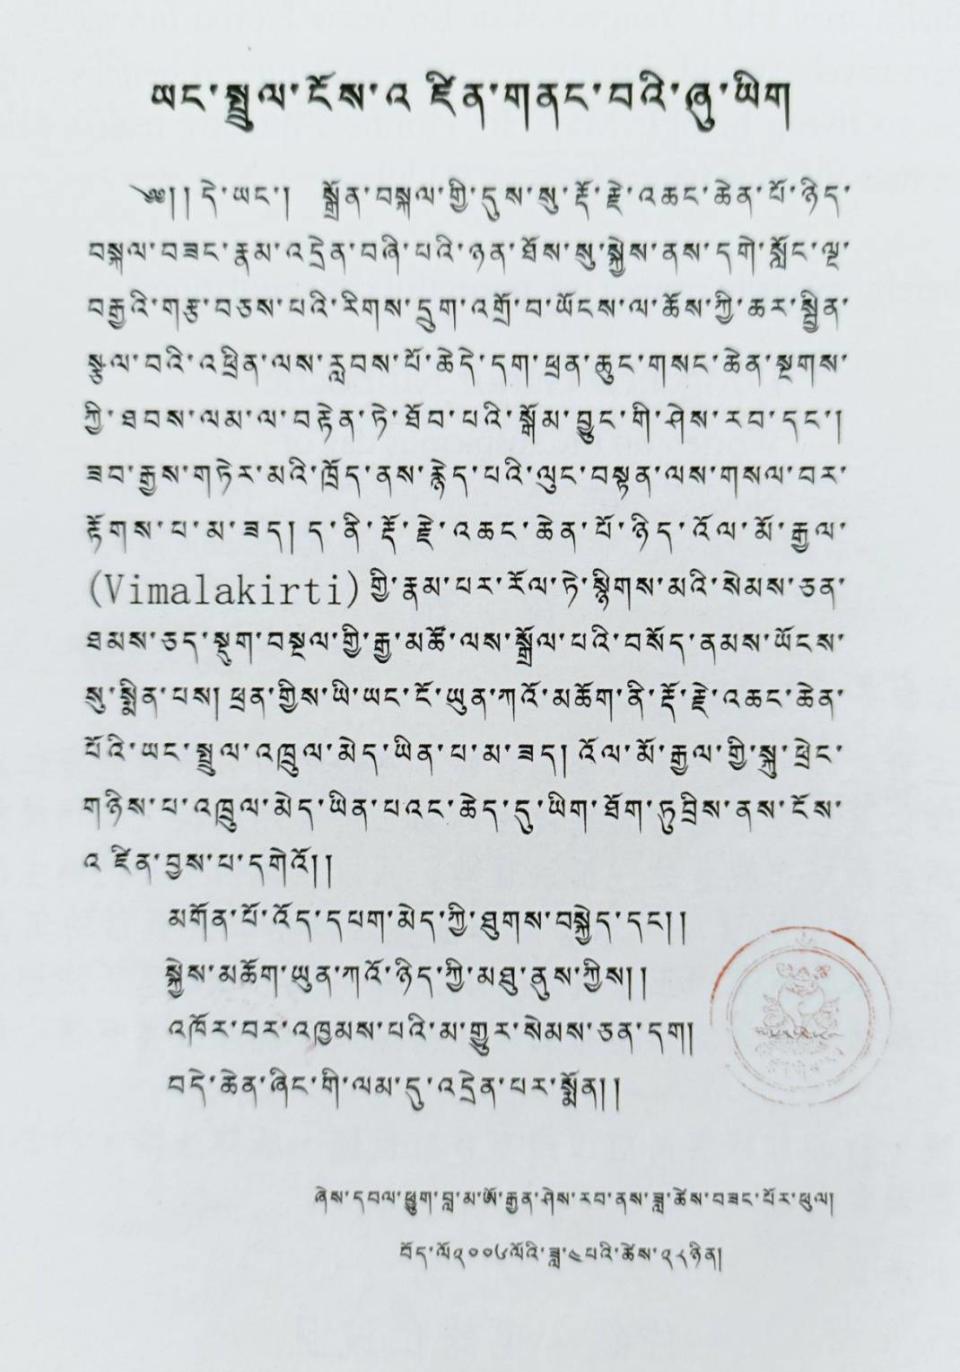 ཡང་སྤྲུལ་ངོས་འ ཛིན་གནང་བའི་ཞུ་ཡིག
༄༅།། དེ་ཡང་། སྔོན་བསྐལ་གྱི་དུས་སུ་རྡོ་རྗེ་འཆང་ཆེན་པོ་ཉིད་
བསྐལ་བཟང་རྣམ་འདྲེན་བཞི་པའི་ཉན་ཐོས་སུ་སྐྱེས་ནས་དགེ་སློང་ལྔ་
བརྒྱའི་གཙྩ་བཅས་པའི་རིགས་དྲུག་འགྲོ་བ་ཡོངས་ལ་ཆོས་ཀྱི་ཆར་སྤྲིན་
སྩལ་བའི་འཕྲིན་ལས་རླབས་པོ་ཆེ་དེ་དག་ཕྲན་ཆུང་གསང་ཆེན་སྔགས་
ཀྱི་ཐབས་ལམ་ལ་བརྟེན་ཏེ་ཐོབ་པའི་སྒོམ་བྱུང་གི་ཤེས་རབ་དང་།
ཟབ་རྒྱས་གཏེར་མའི་ཁྲོད་ནས་རྙེད་པའི་ལུང་བསྟན་ལས་གསལ་བར་
རྟོགས་པ་མ་ཟད། ད་ནི་རྡོ་རྗེ་འཆང་ཆེན་པོ་ཉིད་འོལ་མོ་རྒྱལ་
(Vimalakirti)གྱི་རྣམ་པར་རོལ་ཏེ་སྙིགས་མའི་སེམས་ཅན་
ཐམས་ཅད་སྡུག་བསྔལ་གྱི་རྒྱ་མཚོ་ལས་སྒྲོལ་པའི་བསོད་ནམས་ཡོངས་
སུ་སྨིན་པས། ཕྲན་གྱིས་ཡི་ཡང་ངོ་ཡུན་ཀའོ་མཆོག་ནི་རྡོ་རྗེ་འཆང་ཆེན་
པོའི་ཡང་སྤྲུལ་འཁྲུལ་མེད་ཡིན་པ་མ་ཟད། འོལ་མོ་རྒྱལ་གྱི་སྐུ་ཕྲེང་
གཉིས་པ་འཁྲུལ་མེད་ཡིན་པའང་ཆེད་དུ་ཡིག་ཐོག་ཏུ་བྲིས་ནས་ངོས་
འ ཛིན་བྱས་པ་དགེའོ།།
མགོན་པོ་འོད་དཔག་མེད་ཀྱི་ཐུགས་བསྐྱེད་དང།།
སྐྱེས་མཆོག་ཡུན་ཀའོ་ཉིད་ཀྱི་མཐུ་ནུས་ཀྱིས།།
འཁོར་བར་འཁྱམས་པའི་མ་གྱུར་སེམས་ཅན་དག།
བདེ་ཆེན་ཞིང་གི་ལམ་དུ་འདྲེན་པར་སྨོན།།
ཞེས་དབལ་ཕྱུག་བླ་མ་ཨོ་རྒྱན་ཤེས་རབ་ནས་ཟླ་ཚེས་བཟང་པོར་ཕུལ།
བོད་ལོ༢༠༠༦ལོའི་ཟླ་༤པའི་ཚེས་༢༨ཉིན།